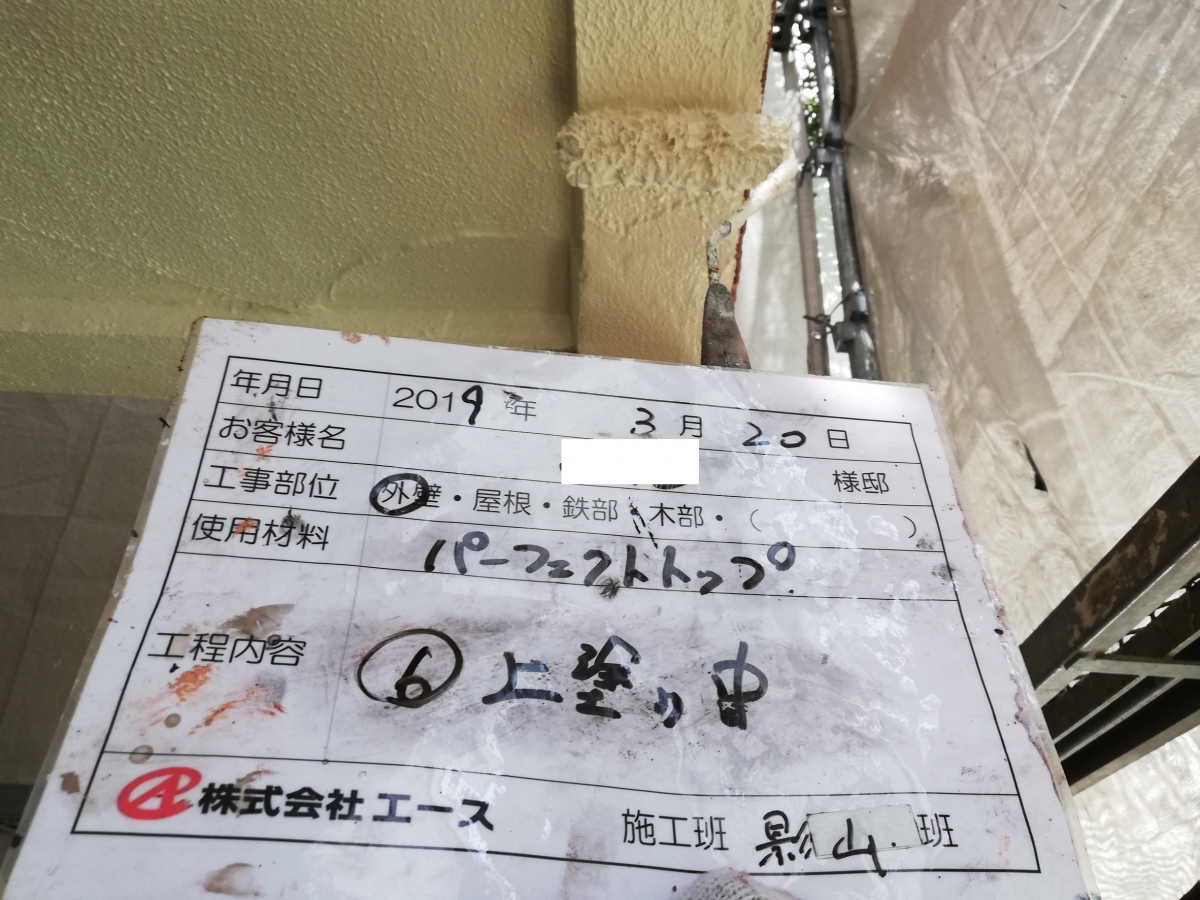 年月日 2019年 3月 20日
お客様名 様邸
工事部位 外壁・屋根・鉄部・木部・（ ）
使用材料 パーフェクトトップ
工程内容 ⑥ 上塗り中
株式会社エース 施工班 影山班